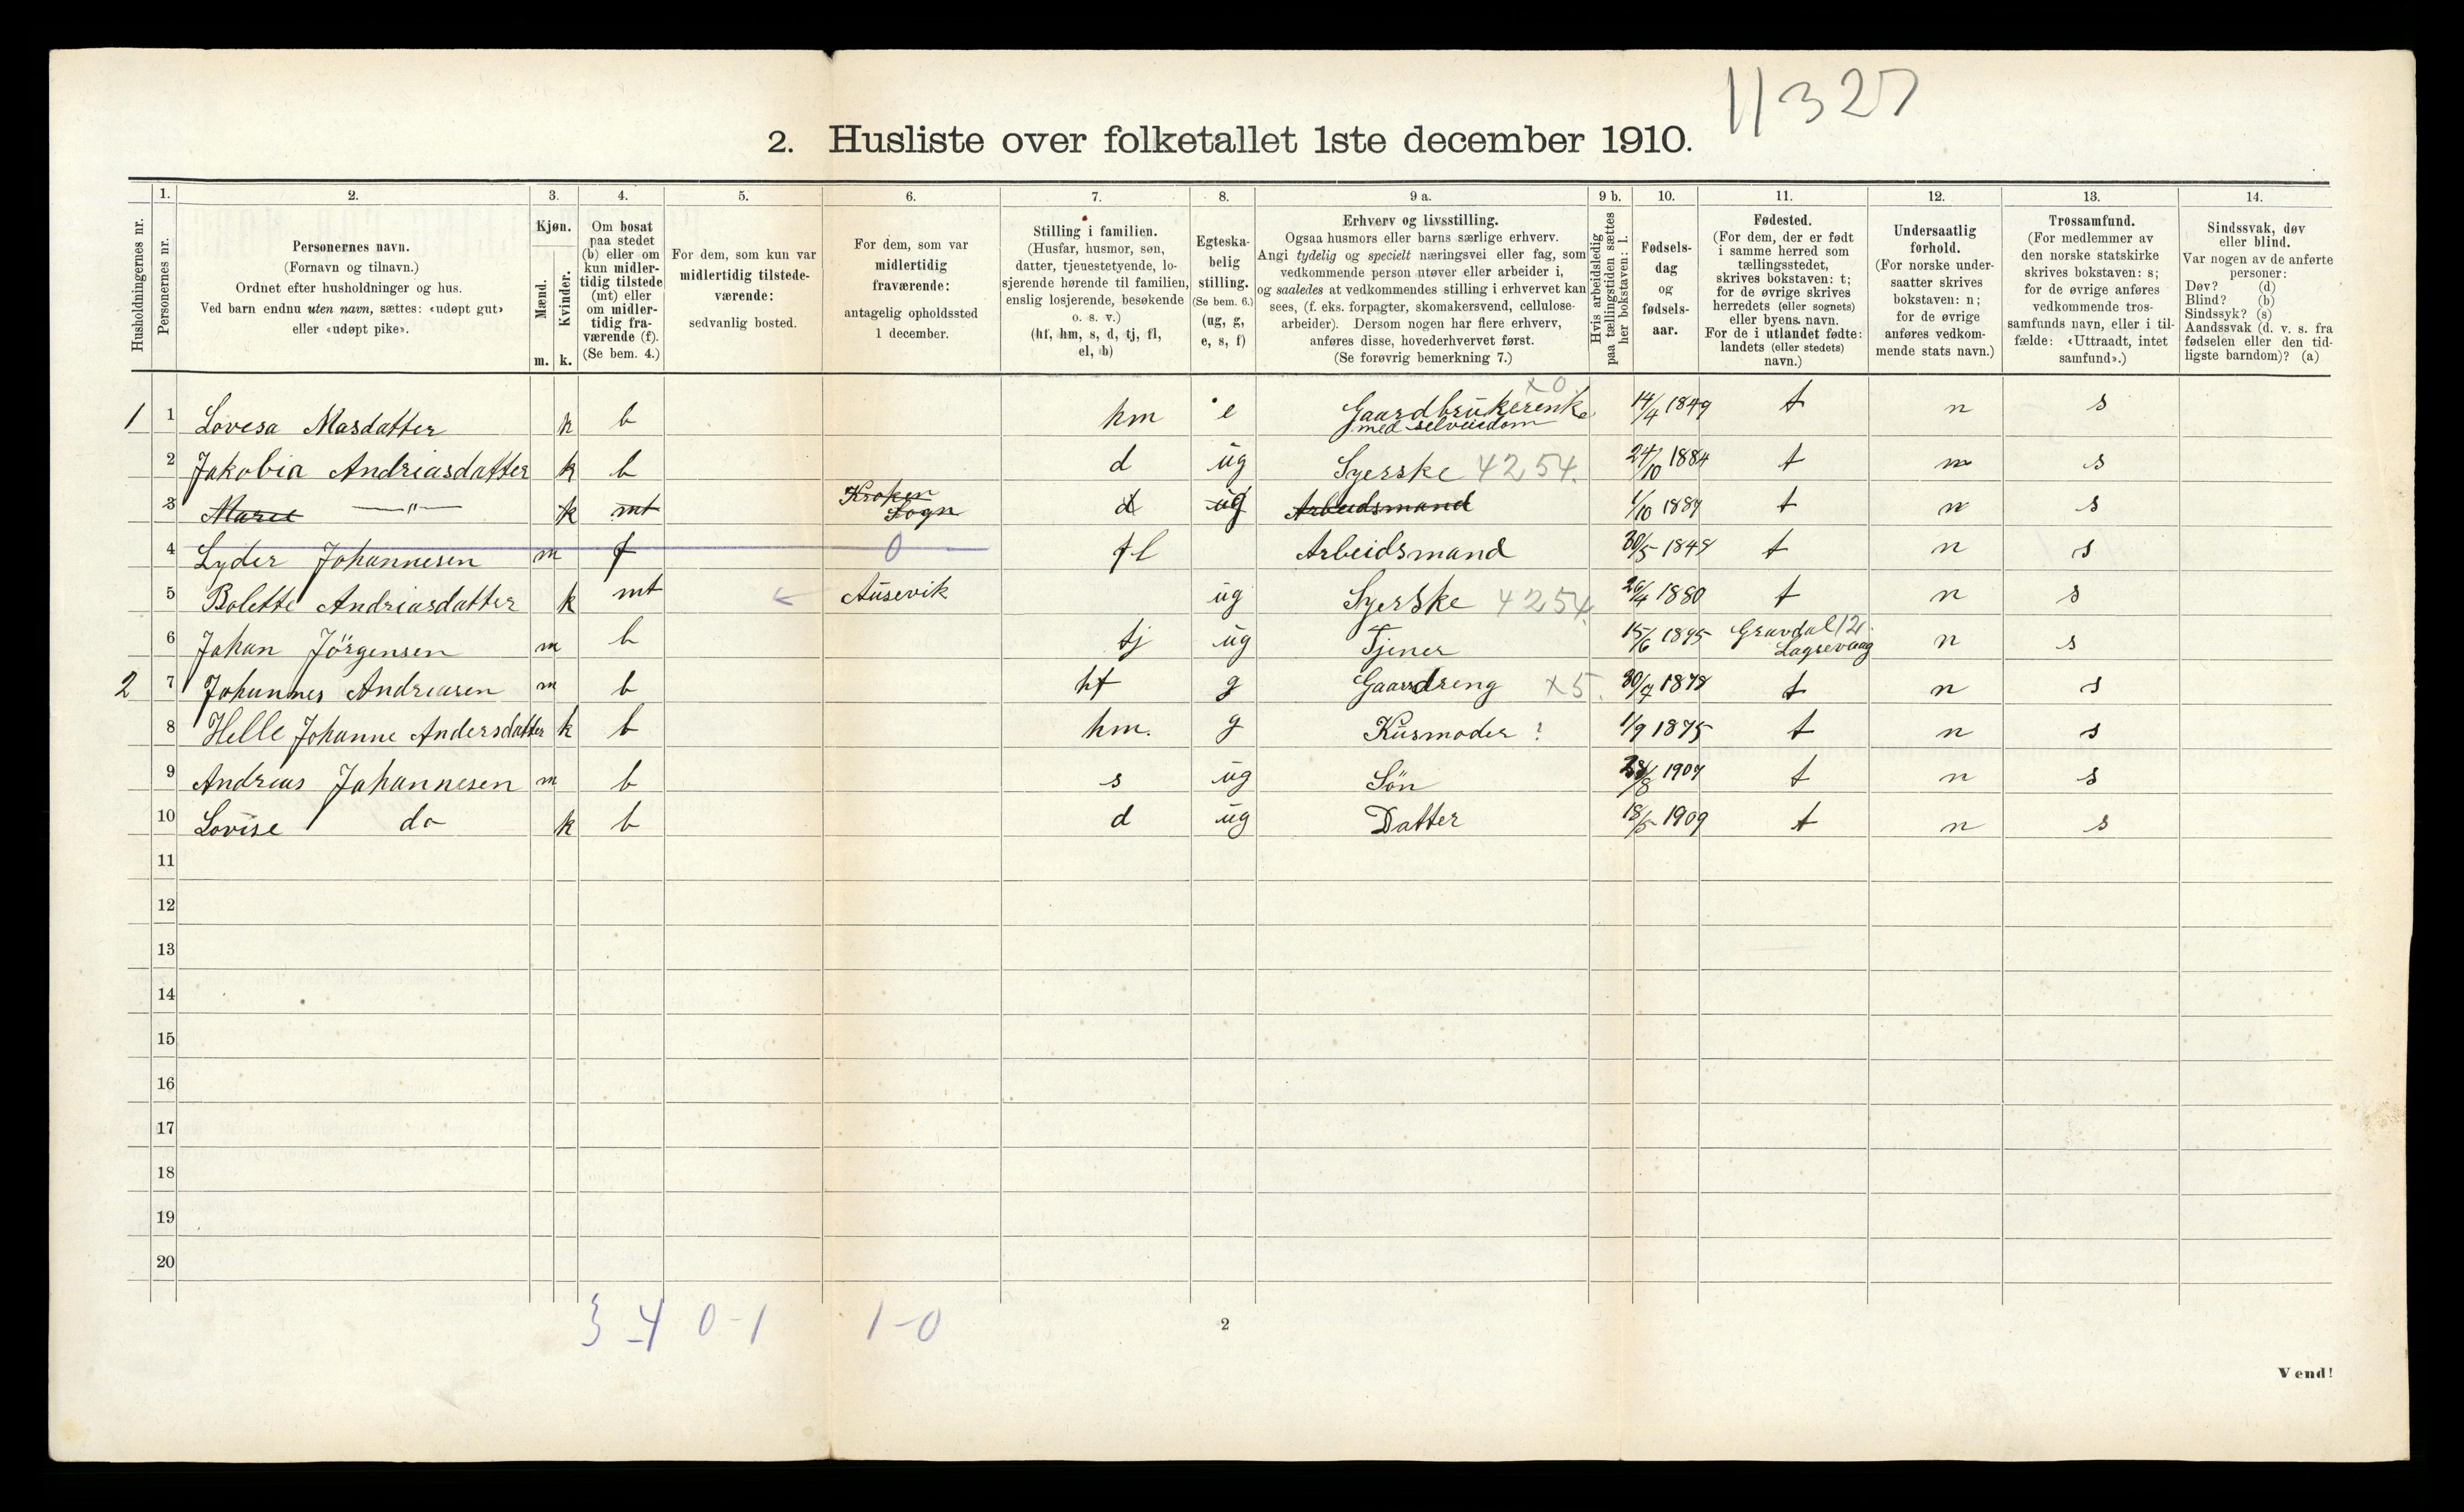 11327
2. Husliste over folketallet 1ste december 1910.
Husholdningernes nr.
1.
Personernes nr.
2.
Personernes navn.
(Fornavn og tilnavn.)
Ordnet efter husholdninger og hus.
Ved barn endnu uten navn, sættes: «udøpt gut»
eller «udøpt pike».
3.
Kjøn.
Mænd.
Kvinder.
m. k.
4.
Om bosat
paa stedet
(b) eller om
kun midler-
tidig tilstede
(mt) eller
om midler-
tidig fra-
værende (f).
(Se bem. 4.)
5.
For dem, som kun var
midlertidig tilstede-
værende:
sedvanlig bosted.
6.
For dem, som var
midlertidig
fraværende:
antagelig opholdssted
1 december.
7.
Stilling i familien.
(Husfar, husmor, søn,
datter, tjenestetyende, lo-
sjerende hørende til familien,
enslig losjerende, besøkende
o. s. v.)
(hf, hm, s, d, tj, fl,
el, b)
8.
Egteska-
belig
stilling.
(Se bem. 6.)
(ug, g,
e, s, f)
9 a.
Erhverv og livsstilling.
Ogsaa husmors eller barns særlige erhverv.
Angi tydelig og specielt næringsvei eller fag, som
vedkommende person utøver eller arbeider i,
og saaledes at vedkommendes stilling i erhvervet kan
sees, (f. eks. forpagter, skomakersvend, cellulose-
arbeider). Dersom nogen har flere erhverv,
anføres disse, hovederhvervet først.
(Se forøvrig bemerkning 7.)
9 b.
Hvis arbeidsledig
paa tællingstiden sættes
her bokstaven: l.
10.
Fødsels-
dag
og
fødsels-
aar.
11.
Fødested.
(For dem, der er født
i samme herred som
tællingsstedet,
skrives bokstaven: t;
for de øvrige skrives
herredets (eller sognets)
eller byens navn.
For de i utlandet fødte:
landets (eller stedets)
navn.)
12.
Undersaatlig
forhold.
(For norske under-
saatter skrives
bokstaven: n;
for de øvrige
anføres vedkom-
mende stats navn.)
13.
Trossamfund.
(For medlemmer av
den norske statskirke
skrives bokstaven: s;
for de øvrige anføres
vedkommende tros-
samfunds navn, eller i til-
fælde: «Uttraadt, intet
samfund».)
14.
Sindssvak, døv
eller blind.
Var nogen av de anførte
personer:
Døv? (d)
Blind? (b)
Sindssyk? (s)
Aandssvak (d. v. s. fra
fødselen eller den tid-
ligste barndom)? (a)
x 0
1 1 Lovesa Masdatter k b hm e Gaardbrukerenke 14/4 1849 t n s
med selveiedom
2 Jakobia Andriasdatter k b d ug Syerske 4254. 24/10 1884 t n s
3 Maret —"— k mt Kroken Sogn d ug Arbeidsmand 1/10 1889 t n s
4 Lyder Johannesen m f 0 fl Arbeidsmand 30/5 1848 t n s
5 Bolette Andriasdatter k mt Ausevik ug Syerske 4254. 26/4 1880 t n s
6 Johan Jörgensen m b tj ug Tjener 15/6 1895 Gravdal 12. Lagsevaag n s
2 7 Johannes Andriasen m b hf g Gaardreng x5. 30/7 1878 t n s
8 Helle Johanne Andersdatter k b hm. g Husmoder 1/9 1875 t n s
9 Andrias Johannesen m b s ug Sön 1907 t n s
10 Lovise do k b d ug Datter 18/5 1909 t n s
11
12
13
14
15
16
17
18
19
20
3-4 0-1 1-0
2
Vend!